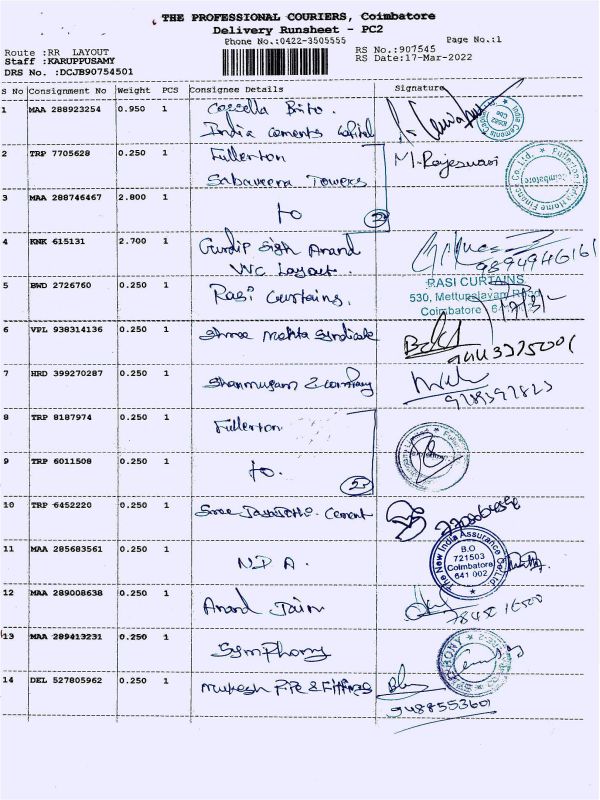 THE PROFESSIONAL COURIERS, Coimbatore
Delivery Runsheet - PC2
Phone No.:0422-3505555
Page No.:1
Route :RR LAYOUT
RS No.:907545
Staff :KARUPPUSAMY
RS Date:17-Mar-2022
DRS No. :DCJB90754501
S No Consignment No Weight PCS Consignee Details Signature
1 MAA 288923254 0.950 1 Brito
India Cements Capital
India Cements
2 TRP 7705628 0.250 1 Fullerton
Sabaveera Towers
M. Rajeswari
Fullerton India Home Finance Co. Ltd. Coimbatore
3 MAA 288746467 2.800 1 to 2
4 KNK 615131 2.700 1 Gurdip Sigh Anand
VVC Layout.
9894946161
5 BWD 2726760 0.250 1 Rasi Curtains.
RASI CURTAINS
530, Mettupalayam Road
Coimbatore
6 VPL 938314136 0.250 1 Shree Mehta Syndicate
7 HRD 399270287 0.250 1 Shanmugam & Company
9789397823
8 TRP 8187974 0.250 1 Fullerton
9 TRP 6011508 0.250 1 to. 2
10 TRP 6452220 0.250 1 Cement
11 MAA 285683561 0.250 1 N.D A.
The New India Assurance Co. Ltd.
B.O
721503
Coimbatore
641 002
12 MAA 289008638 0.250 1 Anand Jain
13 MAA 289413231 0.250 1 Symphony
14 DEL 527805962 0.250 1 Mukesh Pipe & Fittings
9488553601